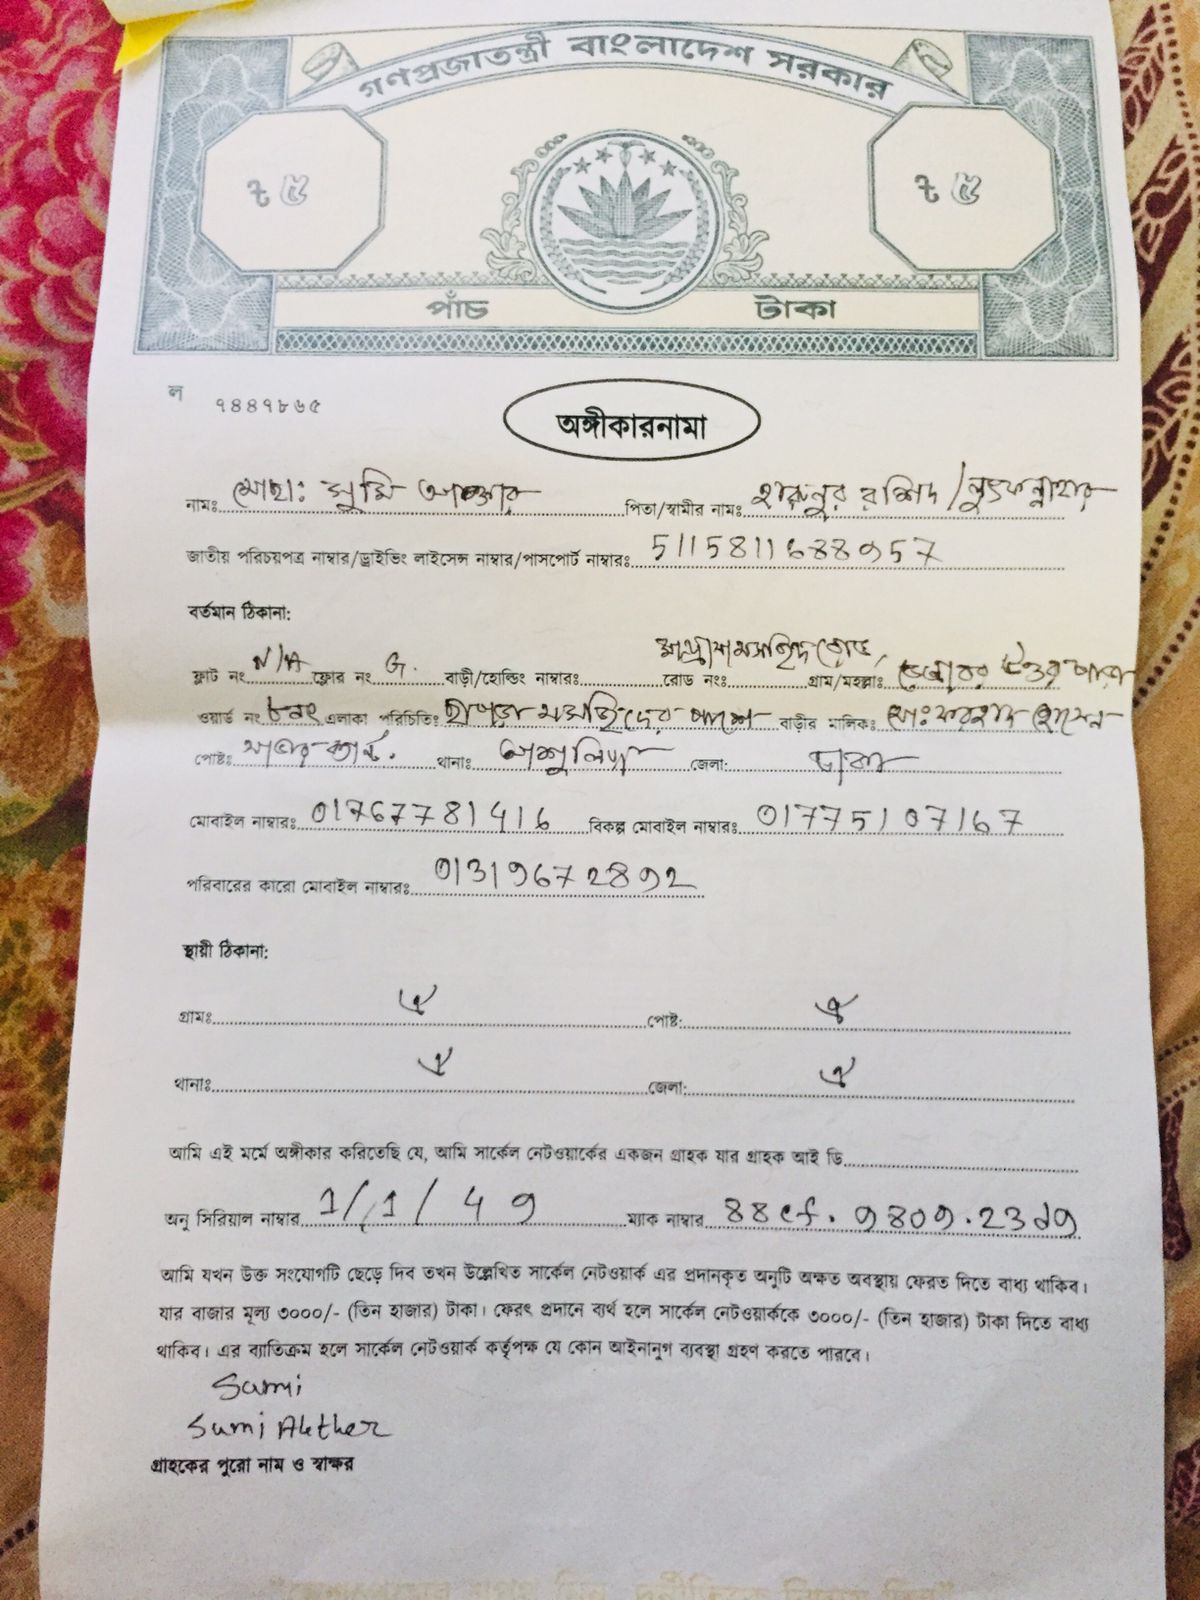 গণপ্রজাতন্ত্রী বাংলাদেশ সরকার
৳ ৫ ৳ ৫
পাঁচ টাকা
ল ৭৪৪৭৮৬৫
অঙ্গীকারনামা
নামঃ মোছা: সুমি আক্তার পিতা/স্বামীর নামঃ হারুনুর রশিদ/লুৎফন্নাহার
জাতীয় পরিচয়পত্র নাম্বার/ড্রাইভিং লাইসেন্স নাম্বার/পাসপোর্ট নাম্বারঃ 5115811688957
বর্তমান ঠিকানা:
ফ্লাট নং N/A ফ্লোর নং G. বাড়ী/হোল্ডিং নাম্বারঃ রোড নংঃ গ্রাম/মহল্লাঃ উত্তর পাড়া
ওয়ার্ড নং ৮নং এলাকা পরিচিতিঃ মসজিদের পাশে বাড়ীর মালিকঃ মোঃ ফরহাদ হোসেন
পোষ্টঃ থানাঃ আশুলিয়া জেলা: ঢাকা
মোবাইল নাম্বারঃ 01767781416 বিকল্প মোবাইল নাম্বারঃ 01775107167
পরিবারের কারো মোবাইল নাম্বারঃ 01319672892
স্থায়ী ঠিকানা:
গ্রামঃ ঐ পোষ্ট: ঐ
থানাঃ ঐ জেলা: ঐ
আমি এই মর্মে অঙ্গীকার করিতেছি যে, আমি সার্কেল নেটওয়ার্কের একজন গ্রাহক যার গ্রাহক আই ডি
অনু সিরিয়াল নাম্বার 1/1/49 ম্যাক নাম্বার 88cf.9809.23d9
আমি যখন উক্ত সংযোগটি ছেড়ে দিব তখন উল্লেখিত সার্কেল নেটওয়ার্ক এর প্রদানকৃত অনুটি অক্ষত অবস্থায় ফেরত দিতে বাধ্য থাকিব।
যার বাজার মূল্য ৩০০০/- (তিন হাজার) টাকা। ফেরৎ প্রদানে ব্যর্থ হলে সার্কেল নেটওয়ার্ককে ৩০০০/- (তিন হাজার) টাকা দিতে বাধ্য
থাকিব। এর ব্যাতিক্রম হলে সার্কেল নেটওয়ার্ক কর্তৃপক্ষ যে কোন আইনানুগ ব্যবস্থা গ্রহণ করতে পারবে।
Sumi
Sumi Akther
গ্রাহকের পুরো নাম ও স্বাক্ষর